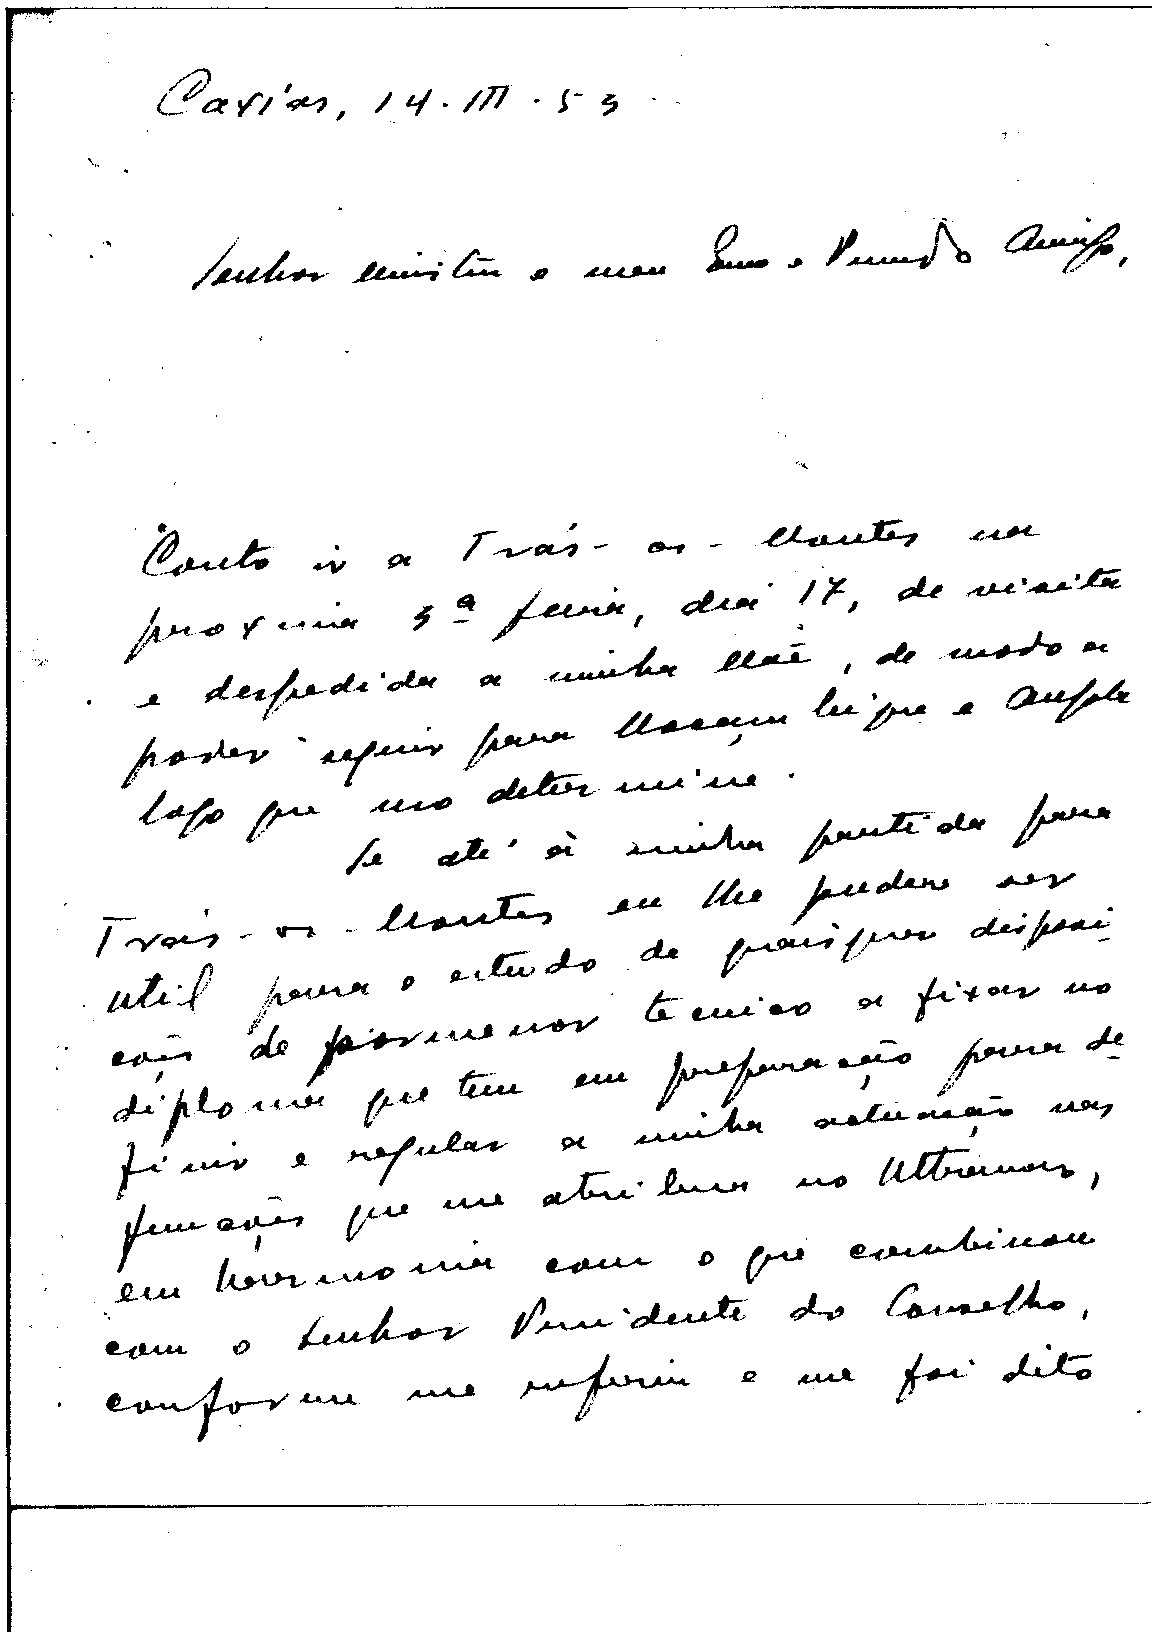 Caxias, 14.III.53
Senhor Ministro e meu Exmo e Prezado Amigo,
Conto ir a Trás-os-Montes na
proxima 3ª feira, dia 17, de visita
e despedida a minha Mãe, de modo a
poder seguir para Moçambique e Angola
logo que mo determine.
Se até à minha partida para
Trás-os-Montes eu lhe puder ser
util para o estudo de quaisquer disposi-
ções de pormenor tecnico a fixar no
diploma que tem em preparação para de-
finir e regular a minha actuação nas
funções que me atribua no Ultramar,
em harmonia com o que combinou
com o Senhor Presidente do Conselho,
conforme me referiu e me foi dito